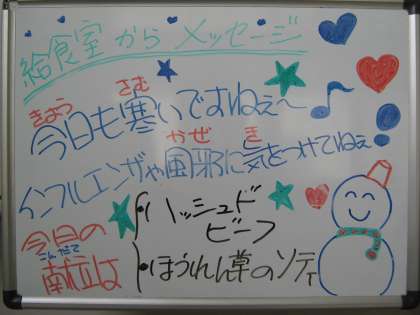 給食室からメッセージ
きょう さむ
今日も寒いですねぇ〜
かぜ き
インフルエンザや風邪に気をつけてねぇ!
今日の
こんだて
献立は
・ハッシュドビーフ
・ほうれん草のソティ